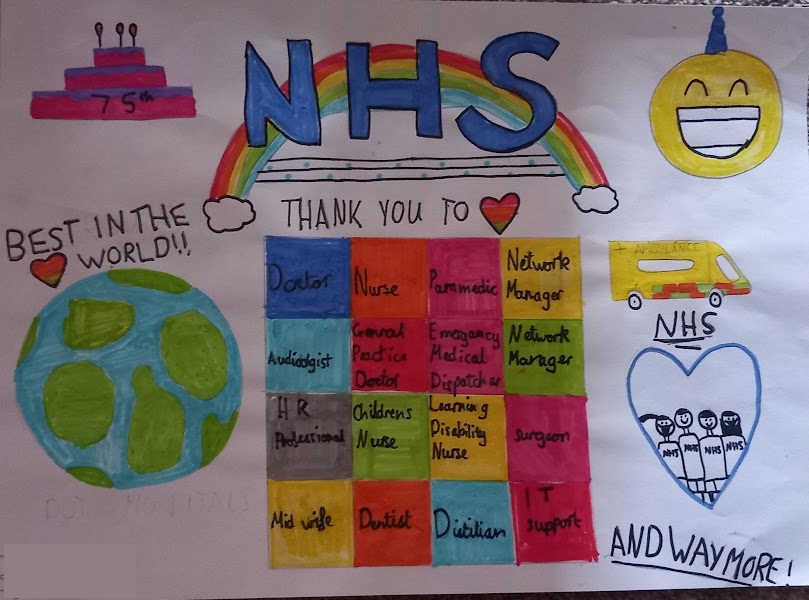 NHS
75th
THANK YOU TO
BEST IN THE
WORLD!!
Doctor
Nurse
Paramedic
Network
Manager
Audiolgist
General
Practice
Doctor
Emergancy
Medical
Dispatcher
Network
Manager
HR
Professional
Childrens
Nurse
Learning
Disability
Nurse
Surgeon
Mid wife
Dentist
Dietitian
IT
support
AMBULANCE
NHS
NHS
NHS
NHS
NHS
AND WAY MORE!